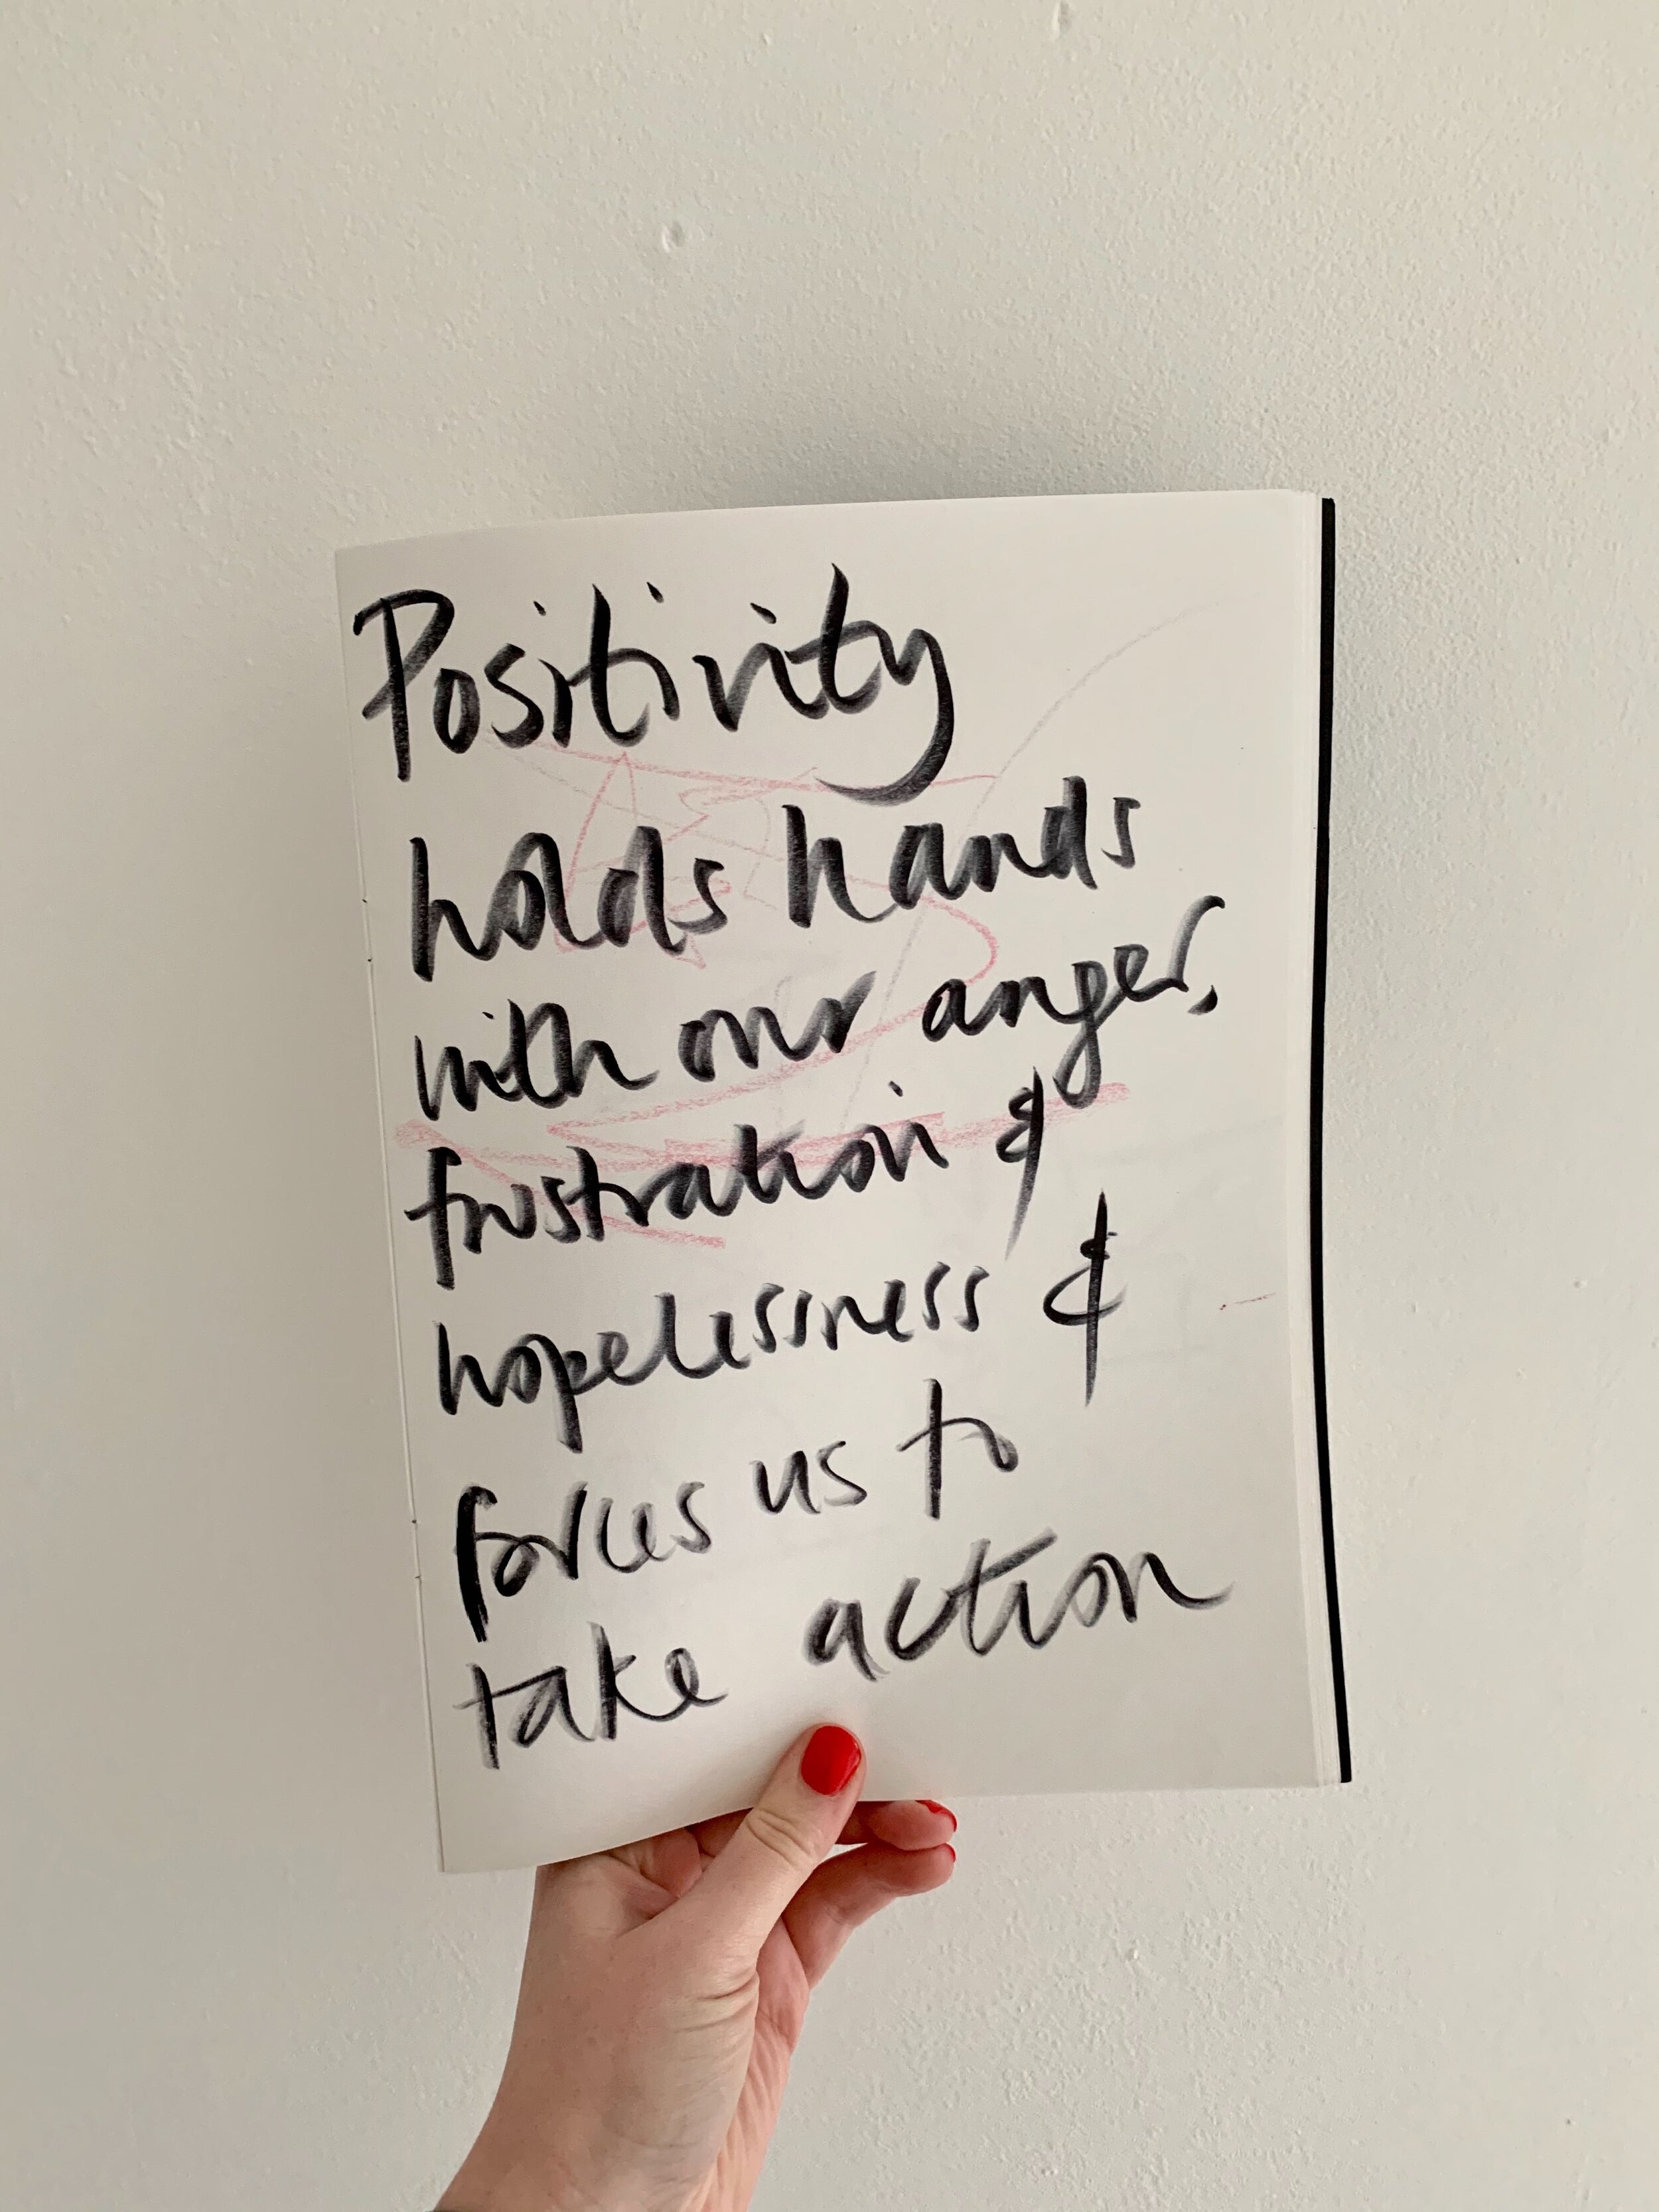 Positivity
holds hands
with our anger,
frustration &
hopelessness &
forces us to
take action